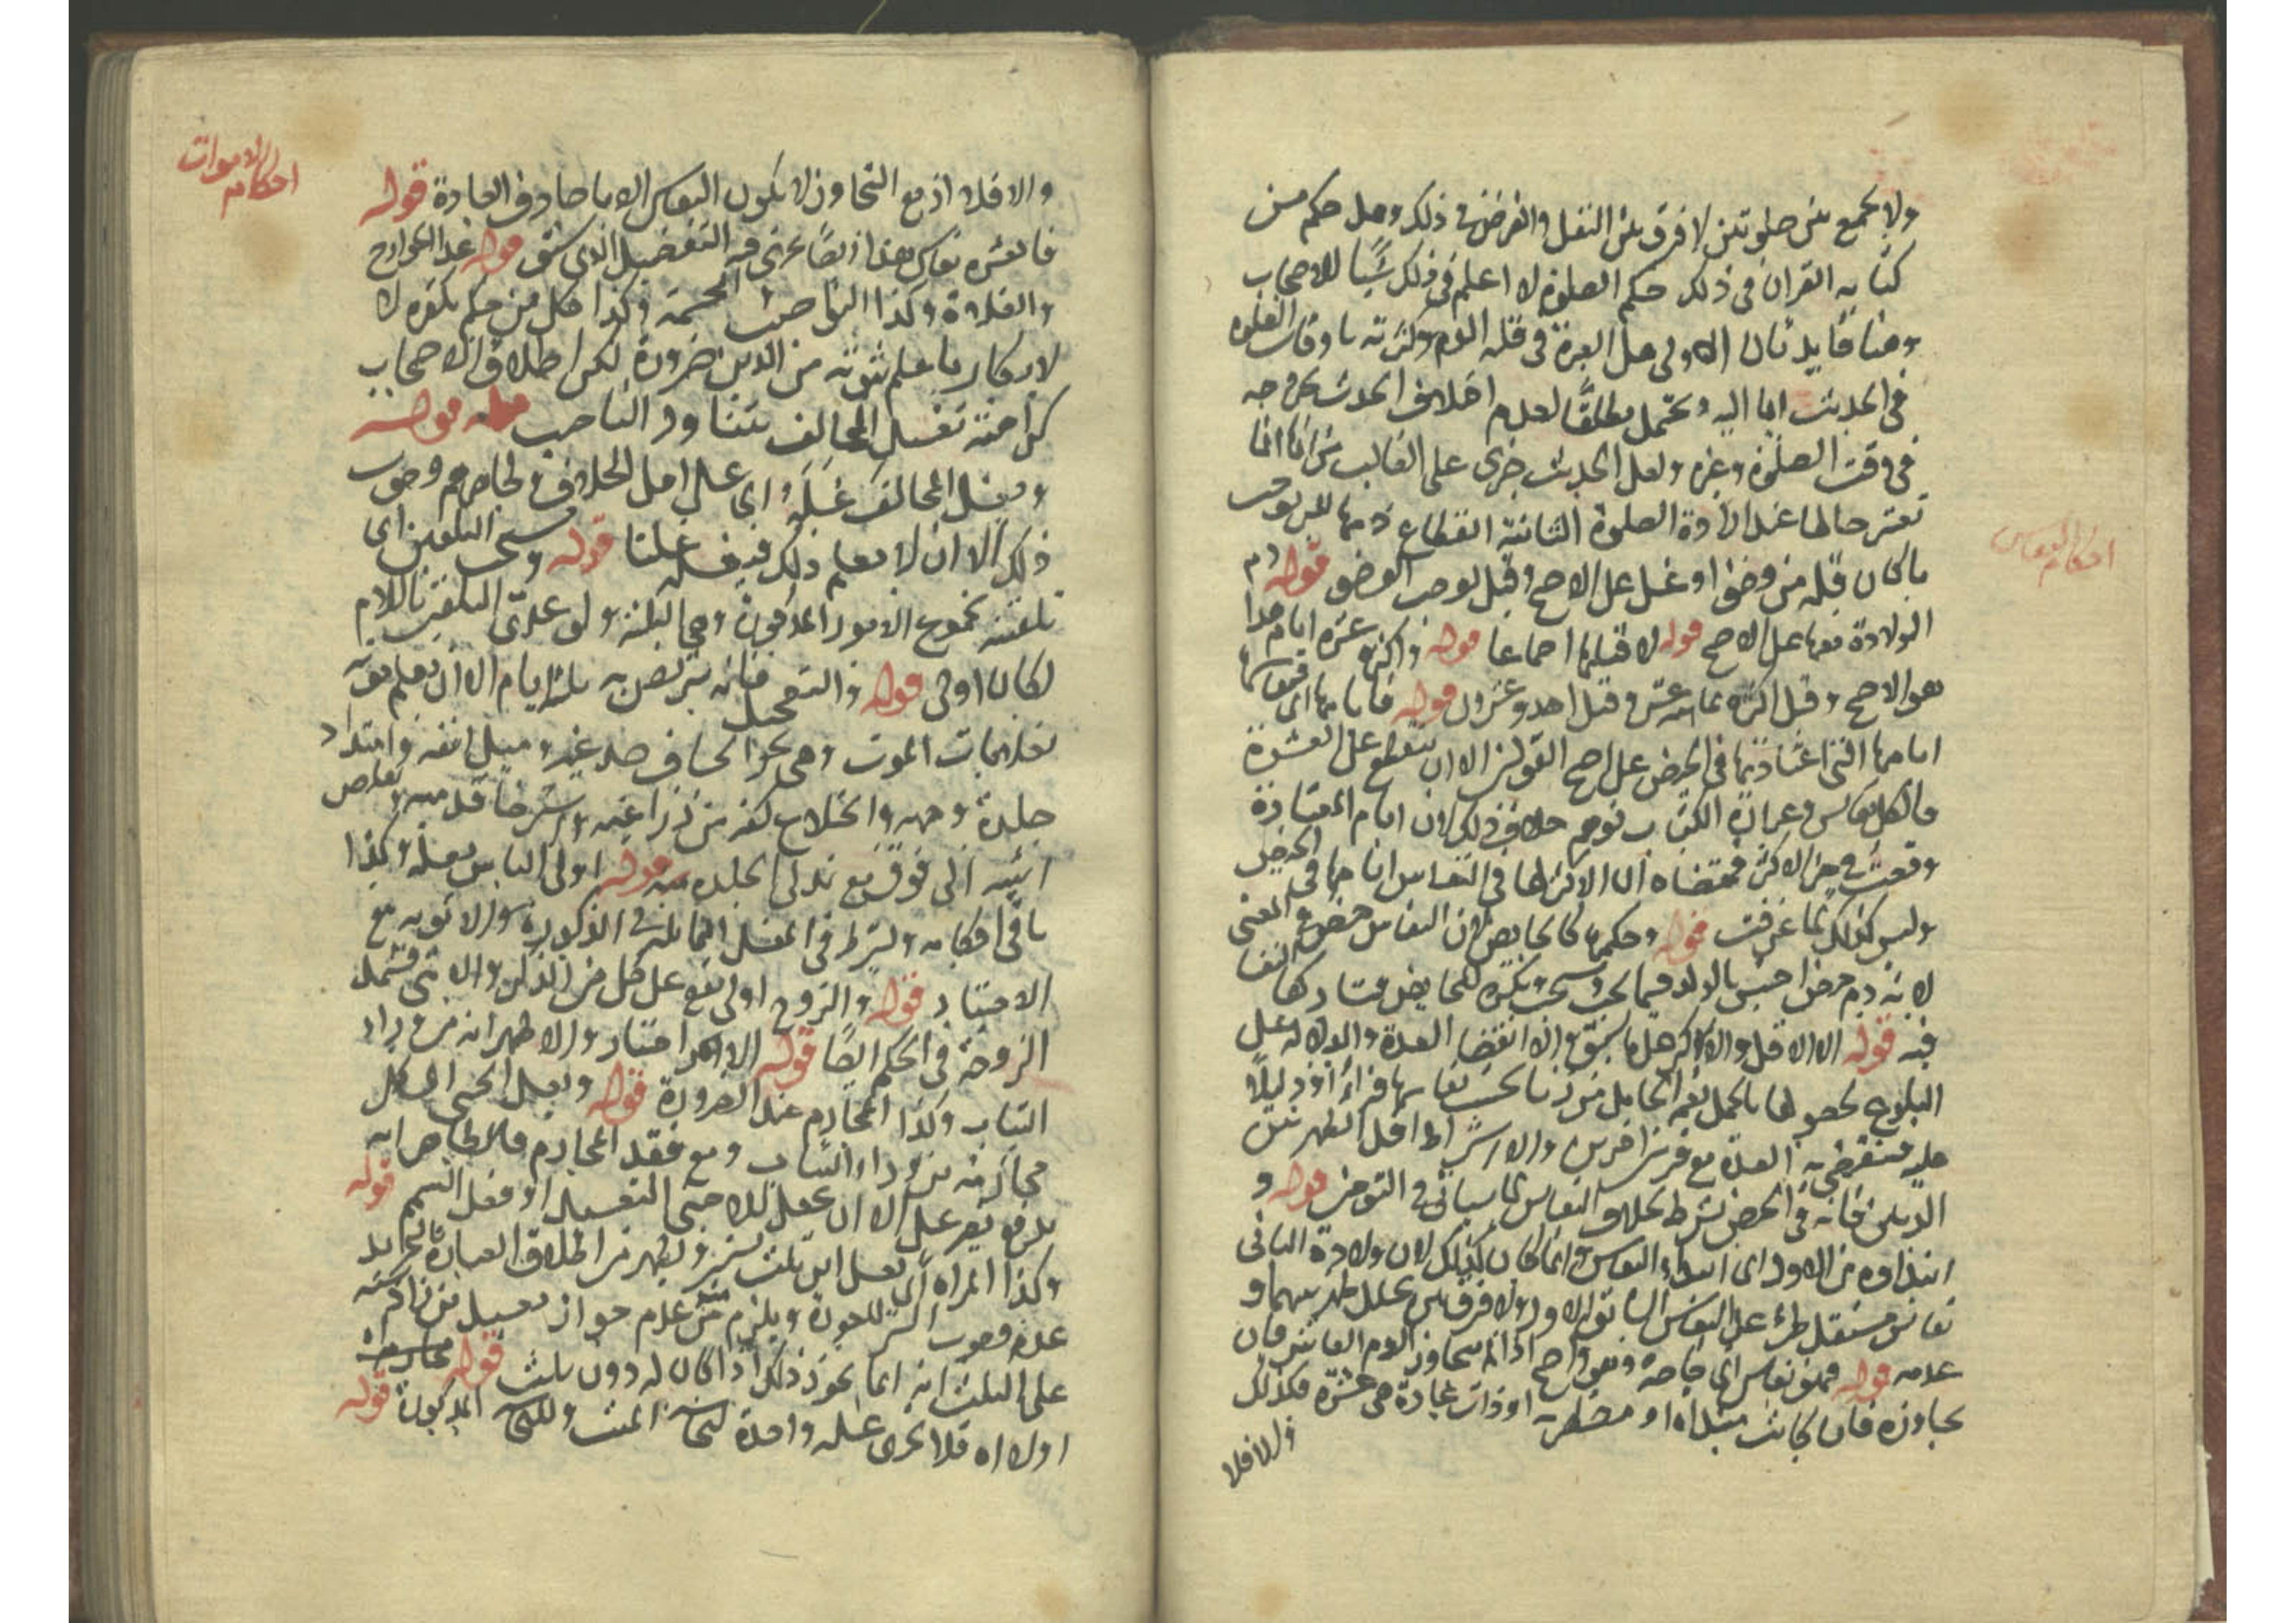 ولا تجمع بين صلوتين لا فرق بين النفل والفرض في ذلك وهل حكم من
كتابة القران في ذلك حكم الصلوة لا اعلم في ذلك شيئا للاصحاب
وهنا فايدتان الاولى هل العبرة في قلة الدم وكثرته باوقات الصلوة
في الحديث ايما اليه ويحتمل مطلقا لعدم اختلاف الحدث
في وقت الصلوة وغيره ولعل الحديث جرى على الغالب من انها انما
تعتبر حالها عند ارادة الصلوة الثانية انقطاع دمها للبرء يوجب
ما كان قبله من وضوء او غسل على الاصح وقيل يوجب الوضوء قوله دم
احكام النفاس
الولادة معها على الاصح قوله لا قبلها اجماعا قوله واكثره عشرة ايام هذا
هو الاصح وقيل اكثره ثمانية عشر وقيل احد وعشرون قوله فايامها اي
ايامها التي اعتادتها في الحيض على اصح القولين الا ان ينقطع على العشرة
فالكل نفاس وعبارة الكتاب توهم خلاف ذلك لان ايام المعتادة
وقعت في حيز الاكثر فمقتضاه ان الاكثر لها في النفاس ايامها في الحيض
وليس كذلك لما عرفت قوله وحكمها كالحايض لان النفاس حيض في المعنى
لانه دم حيض احتبس بالولد فيما يجب ويستحب ويكره للحايض تشاركها النفساء
فيه قوله الا الاقل والاكثر هل ما سبق والا انقضاء العدة والدلالة على
البلوغ لحصولها بالحمل نعم الحامل من زنا يحسب نفاسها قرءا
عليه فتنقضي به العدة مع قرئين اخرين والا اشتراط اقل الطهر بين
الدمين فانه في الحيض شرط بخلاف النفاس كما سياتي في التوءمين قوله و
ابتداوه من الاول اي ابتداء النفاس وانما كان كذلك لان ولادة الثاني
نفاس مستقل طرء على النفاس السابق للاول ولا فرق بين تخلل طهر بينهما و
عدمه قوله فهو نفاس اي خاصة وهو واضح اذا لم يتجاوز الدم العاشر فان
تجاوزه فان كانت مبتداة او مضطربة او ذات عادة هي عشرة فكذلك
والا فلا
احكام الاموات
والا فلا اذ مع التجاوز لا يكون النفاس الا ما صادف العادة قوله
فالعشرة نفاس هذا ايضا يجري فيه التفصيل الذي سبق قوله عدا الخوارج
والغلاة وكذا النواصب والمجسمة وكذا كل من حكم بكفره لا
لانكار ما علم ثبوته من الدين ضرورة لكن اطلاق الاصحاب
كراهته تغسيل المخالف يتناول الناصب قوله
ويغسل المخالف غسله اي غسل اهل الخلاف وظاهرهم وجوب
ذلك الا ان لا يعلم ذلك فيغسله غسلنا قوله ويستحب التلقين اي
تلقينه مجموع الامور المذكورة وهي الثلثة ولو عدى التلقين باللام
لكان اولى قوله والتعجيل فانه يتربص به ثلثة ايام الا ان يعلم موته
بعلامات الموت وهي نحو انخساف صدغيه وميل انفه وامتداد
جلدة وجهه وانخلاع كفه من ذراعيه واسترخاء قدميه وتقلص
انثييه الى فوق مع تدلي الجلدة قوله اولى الناس بغسله وكذا
باقي احكامه ويشترط في المغسل المماثلة في الذكورة والانوثة مع
الاختيار قوله والزوج اولى يقع على كل من الذكر والانثى فتشمل
الزوجة في الحكم ايضا قوله الا اختيار والاظهر انه من وراء
الثياب وكذا المحارم عند الضرورة قوله ويغسل الخنثى المشكل
محارمه من وراء الثياب ومع فقد المحارم فالظاهر انه
يدفن بغير غسل الا ان يجعل للاجنبي التغسيل او فعل التيمم قوله
وكذا المراة اي تغسل ابن ثلث سنين ويظهر من اطلاق العبارة كالتحرير
عدم وجوب الستر للعورة ويلزم منه عدم جواز تغسيل من زاد سنه
على الثلث انه انما يجوز ذلك اذا كان له دون ثلث قوله
اولاه فلا يجزي غسله واحدة لنجاسة الميت وللنجاسة المذكورة قوله